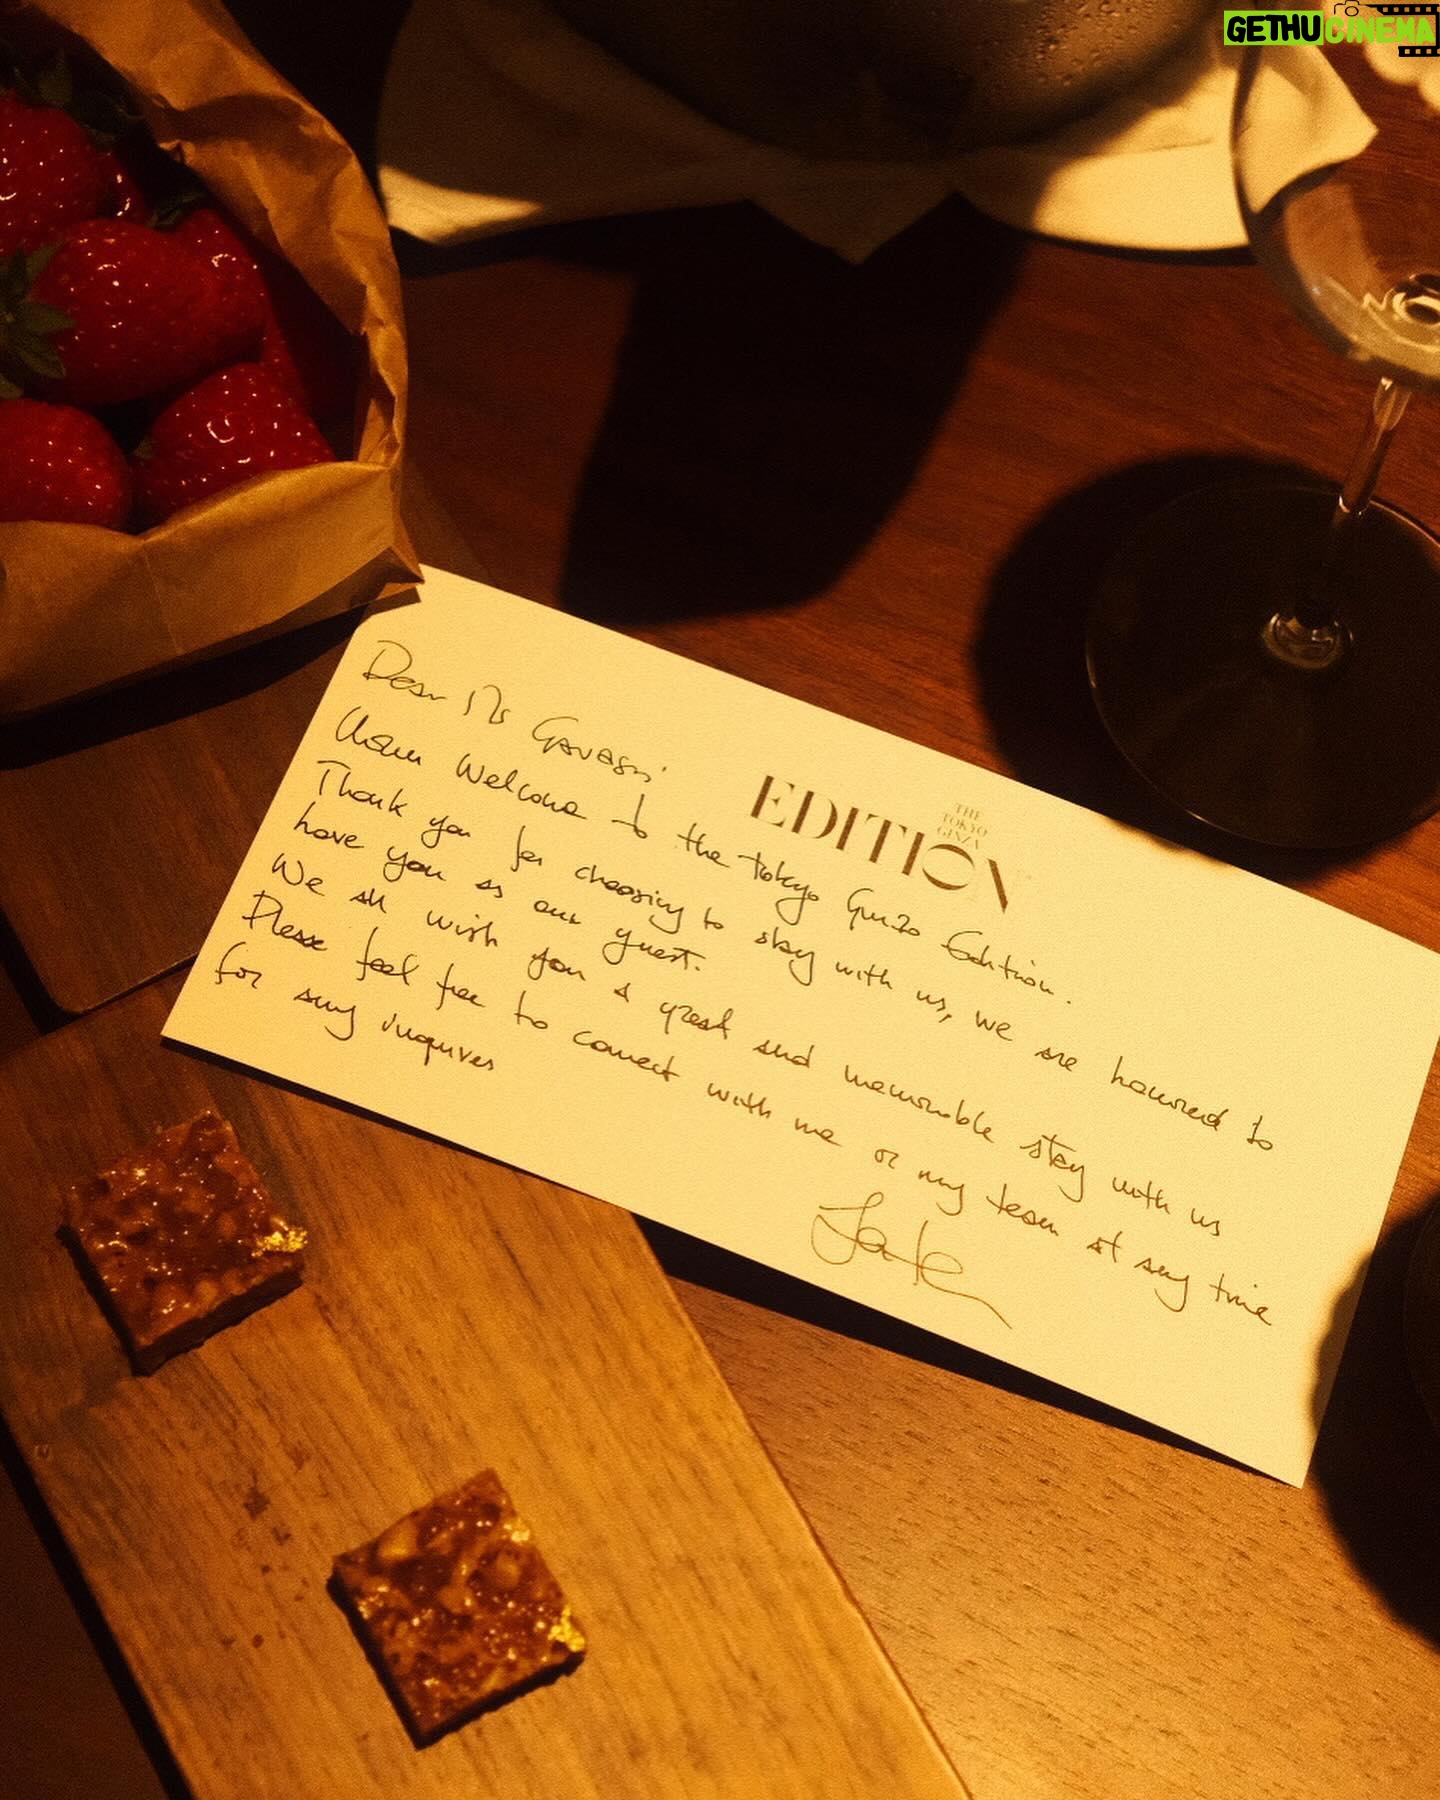 GETHUCINEMA
EDITION
THE
TOKYO
GINZA
Dear Ms Gavassi
Warm Welcome to the Tokyo Ginza Edition.
Thank you for choosing to stay with us, we are honored to
have you as our guest.
We all wish you a great and memorable stay with us
Please feel free to connect with me or my team at any time
for any inquires